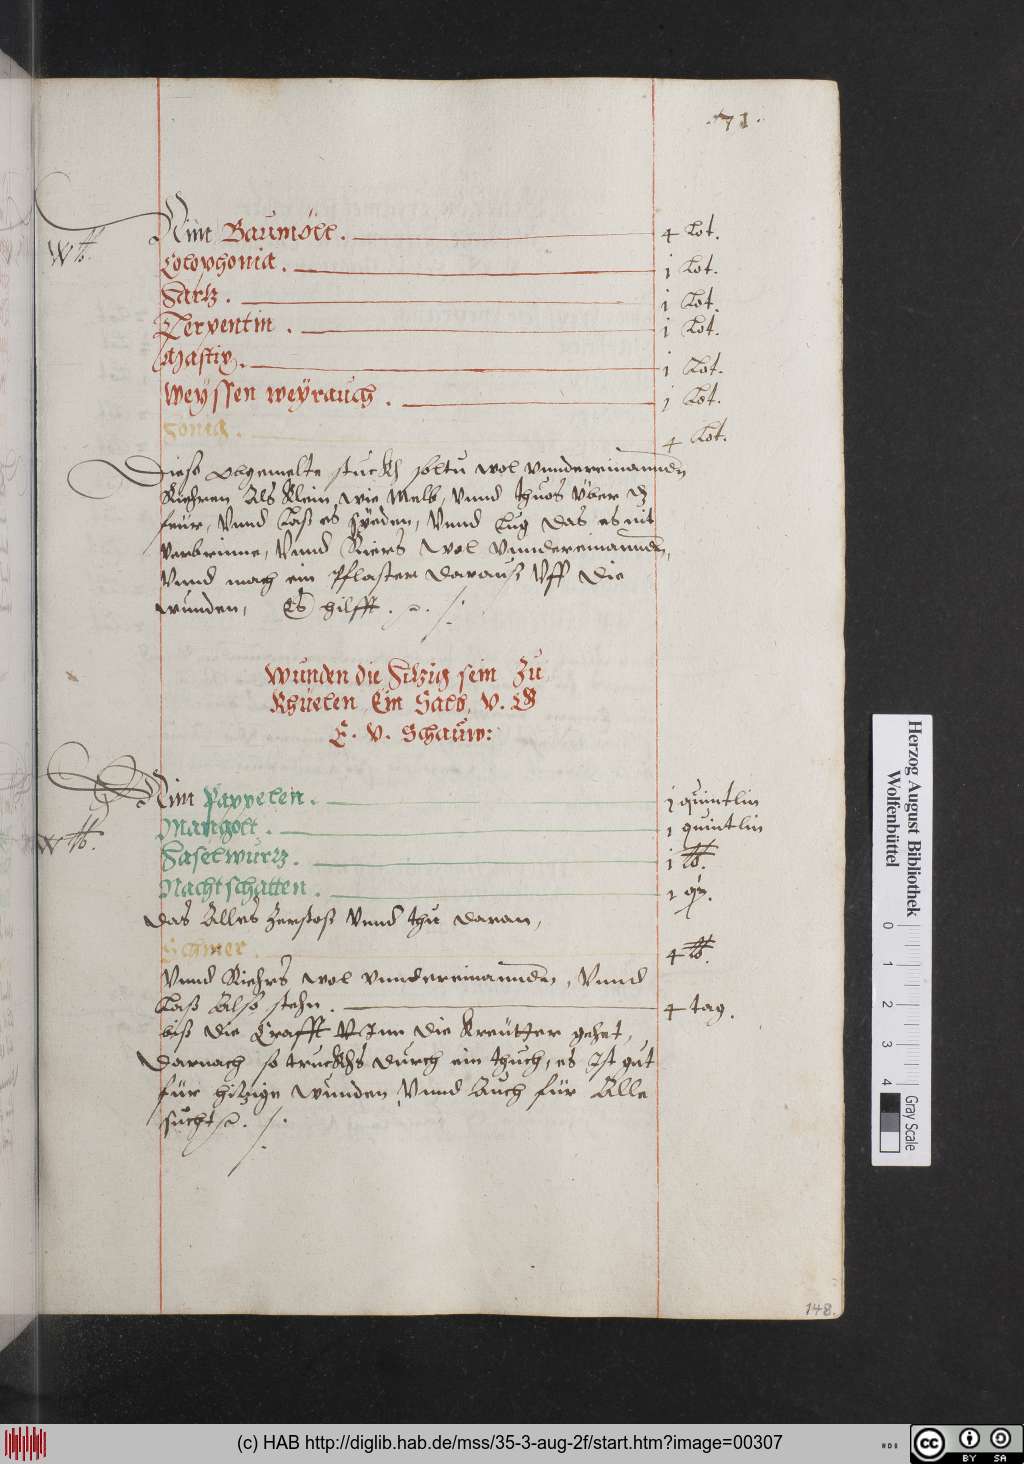 .71.
Nim Baumöll. 4 Lot.
W tb.
Colophonia. j Lot.
Hartz. j Lot.
Terpentin. j Lot.
Mastix. j Lot.
Weyssen weyrauch. j Lot.
Honig. 4 Lot.
Diese obgemelte stuckh soltu wol vndereinannder
Riehren Als Klein, wie Melb, Vnnd thuos vber dz
feür, Vnnd Laß es syeden, Vnnd Lug das es nit
verbrinne, Vnnd Riers wol vndereinannder,
Vnnd mach ein Pflaster darauß Vff die
wunden, Es hilfft.
Wunden die Hitzig sein Zu
Khüelen Ein Salb, V. G
E. V. Schauw:
Nim Pappelen. j quintlin
Mangolt. j quintlin
W tb.
Haselwurtz. j lb.
Nachtschatten. j
Das Alles Zerstoß Vnnd thu daran,
Schmer. 4 lb.
Vnnd Riehrs wol vndereinannder, Vnnd
Laß Also stehn. 4 tag.
biß die Crafft Inn die Kreütter gehet,
Darnach so truckhs durch ein thuch, es Ist gut
für hitzige wunden Vnnd Auch für Alle
sucht
148.
Herzog August Bibliothek
Wolfenbüttel
0 1 2 3 4
Gray Scale
(c) HAB http://diglib.hab.de/mss/35-3-aug-2f/start.htm?image=00307
cc BY SA